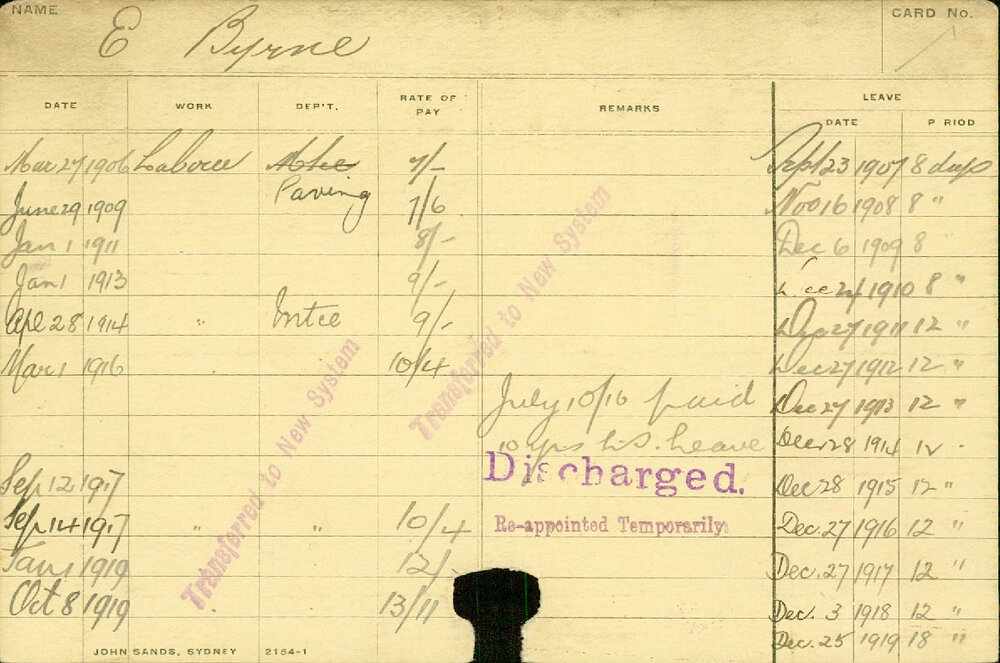 NAME CARD No.
E Byrne
DATE WORK DEP'T. RATE OF PAY REMARKS LEAVE
DATE P RIOD
Mar 27 1906 Laborer 7/- Sept 23 1907 8 days
Paving
June 29 1909 7/6 Nov 16 1908 8 "
Jan 1 1911 8/- Dec 6 1909 8
Jan 1 1913 9/- Dec 24 1910 8 "
Apl 28 1914 " 9/- Dec 27 1911 12 "
Mar 1 1916 10/4 Dec 27 1912 12 "
July 10/16 paid Dec 27 1913 12 "
10 yrs L.S. Leave Dec 28 1914 12
Sep 12 1917 Discharged. Dec 28 1915 12 "
Sep 14 1917 " " 10/4 Re-appointed Temporarily. Dec. 27 1916 12 "
Jan 1 1919 12/- Dec. 27 1917 12 "
Oct 8 1919 13/11 Dec. 3 1918 12 "
Dec. 25 1919 18 "
Transferred to New System
Transferred to New System
JOHN SANDS, SYDNEY 2164-1